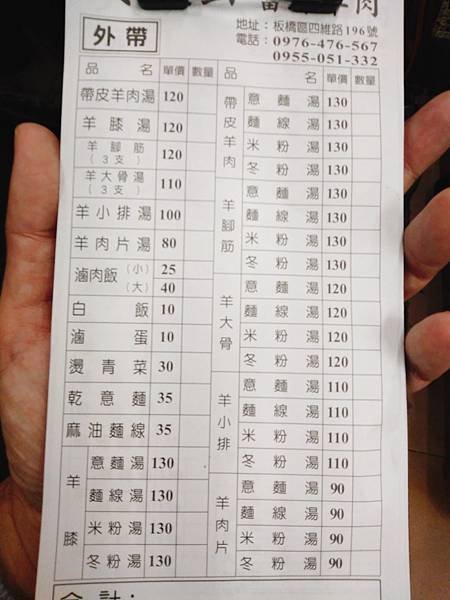 肉
外帶
地址：板橋區四維路196號
電話：0976-476-567
0955-051-332
品名 單價 數量
帶皮羊肉湯 120
羊膝湯 120
羊腳筋（3支） 120
羊大骨湯（3支） 110
羊小排湯 100
羊肉片湯 80
滷肉飯（小） 25
（大） 40
白飯 10
滷蛋 10
燙青菜 30
乾意麵 35
麻油麵線 35
羊膝
意麵湯 130
麵線湯 130
米粉湯 130
冬粉湯 130
品名 單價 數量
帶皮羊肉
意麵湯 130
麵線湯 130
米粉湯 130
冬粉湯 130
羊腳筋
意麵湯 130
麵線湯 130
米粉湯 130
冬粉湯 130
羊大骨
意麵湯 120
麵線湯 120
米粉湯 120
冬粉湯 120
羊小排
意麵湯 110
麵線湯 110
米粉湯 110
冬粉湯 110
羊肉片
意麵湯 90
麵線湯 90
米粉湯 90
冬粉湯 90
合計：